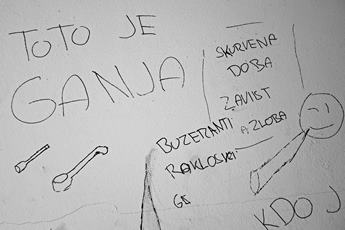 TOTO JE
GANJA
SKURVENA
DOBA
ZAVIST
A ZLOBA
BUZERANTI
GE
KDO J